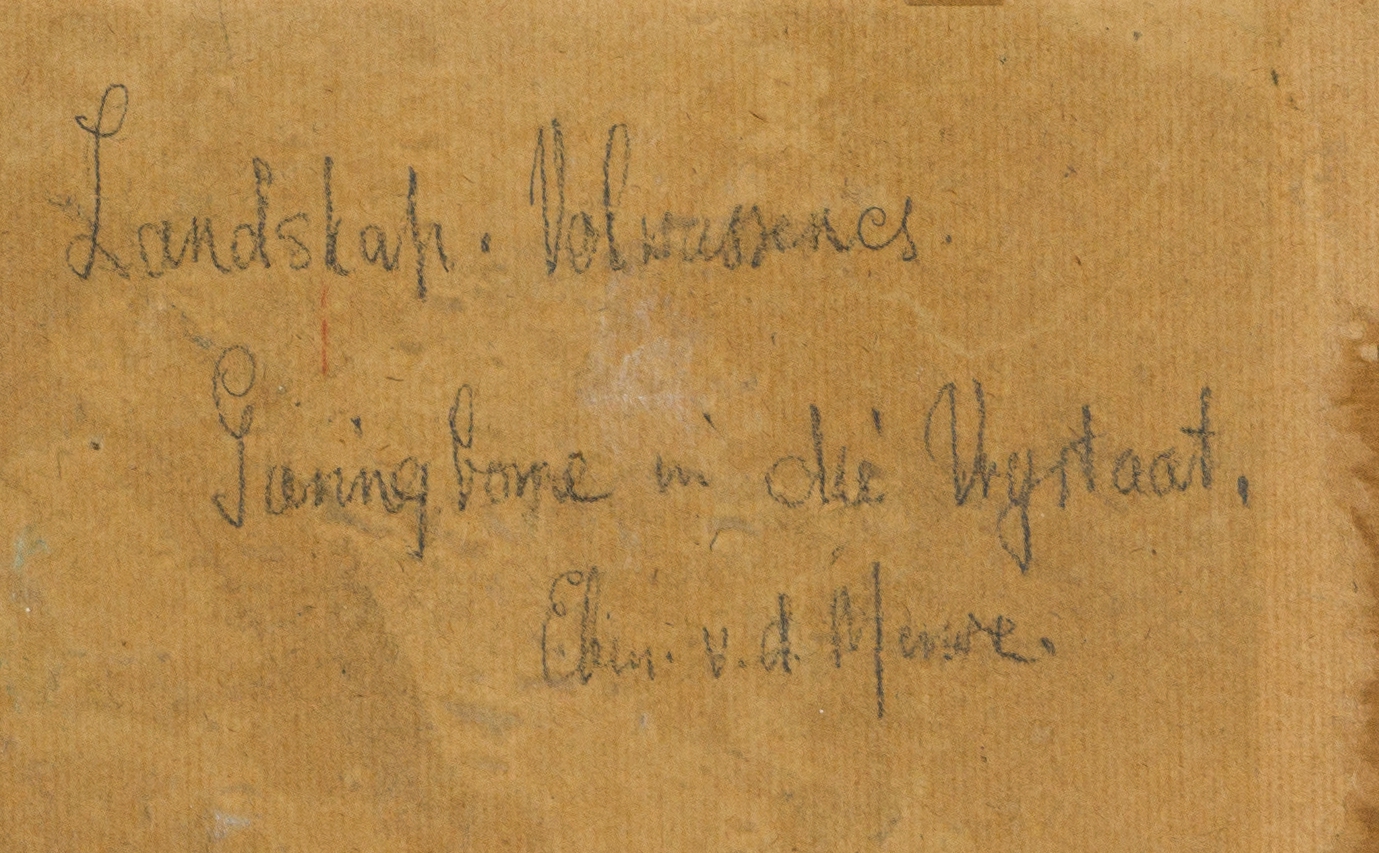 Landskap. Volwassenes.
Garingbome in die Vrystaat.
Eben. v.d. Merwe.